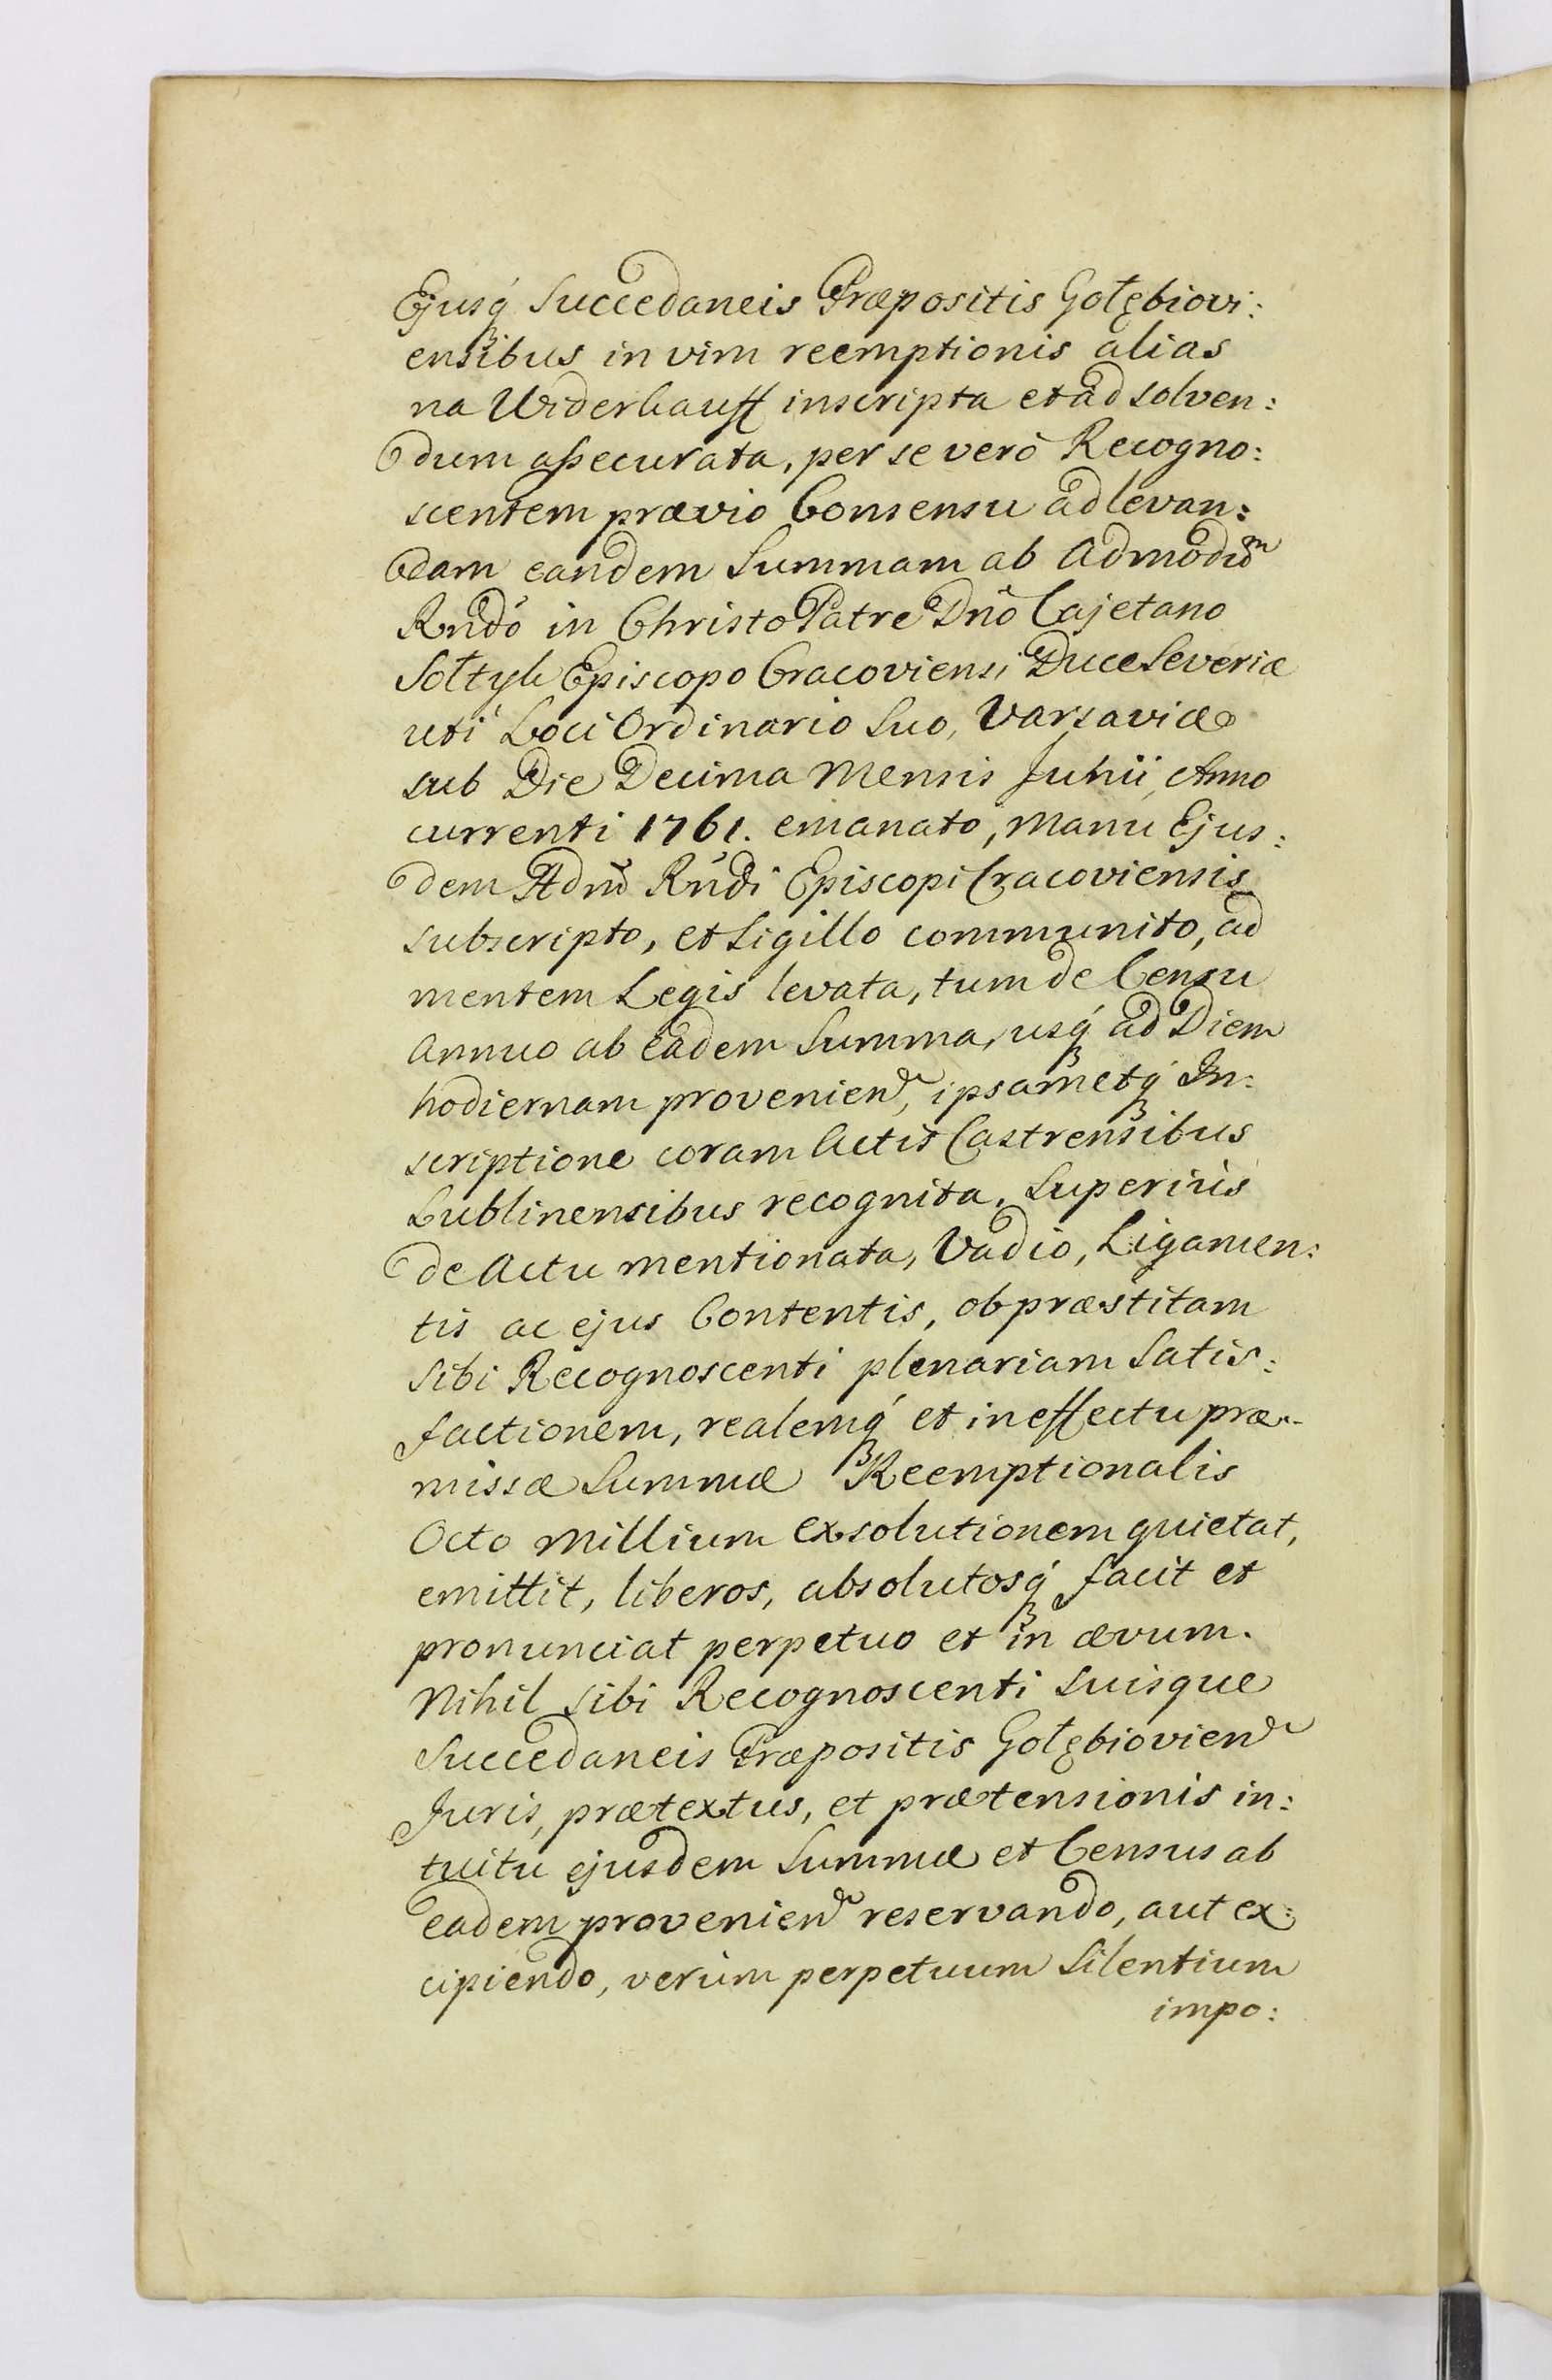 Ejusq́ Succedaneis Præpositis Gołębiovi:
ensibus in vim reemptionis alias
na Widerkauff inscripta et ad solven:
dum assecurata, per se verò Recogno:
scentem prævio Consensu ad levan:
dam eandem Summam ab Admodũm
Rńdo in Christo Patre Dńo Cajetano
Sołtyk Episcopo Cracoviensi Duce Severiæ
uti Loci Ordinario Suo, Varsaviæ
sub Die Decima Mensis Junii, Anno
currenti 1761. emanato, Manu Ejus:
dem Adm̃ Rńdi Episcopi Cracoviensis
subscripto, et Sigillo communito, ad
mentem Legis levata, tum de Censu
Annuo ab eadem Summa, usq́ ad Diem
hodiernam provenien, ipsametq́ In:
scriptione coram Actis Castrensibus
Lublinensibus recognita, Superiùs
de Actu mentionata, Vadio, Ligamen:
tis ac ejus Contentis, ob præstitam
Sibi Recognoscenti plenariam Satis:
factionem, realemq́ et in effectu præ:
missæ Summæ Reemptionalis
Octo Millium exsolutionem quietat,
emittit, liberos, absolutosq́ facit et
pronunciat perpetuo et in ævum.
Nihil sibi Recognoscenti Suisque
Succedaneis Præpositis Gołębiovien
Juris, prætextus, et prætensionis in:
tuitu ejusdem Summæ et Census ab
eadem provenien reservando, aut ex:
cipiendo, verùm perpetuum Silentium
impo: